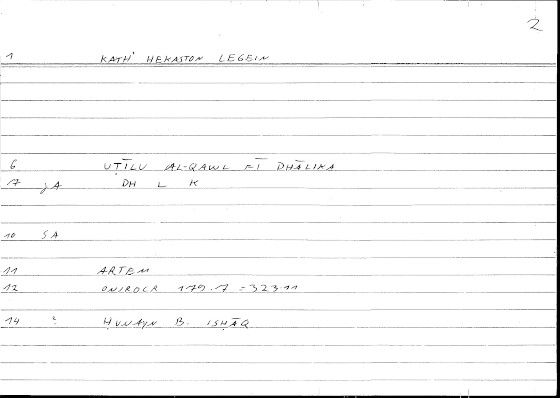 2
1 KATH' HEKASTON LEGEIN
6 UṬĪLU AL-QAWL FĪ DHĀLIKA
7 JA DH L K
10 SA
11 ARTEM
12 ONIROCR 179.7 = 323.11
14 : ḤUNAYN B. ISḤĀQ